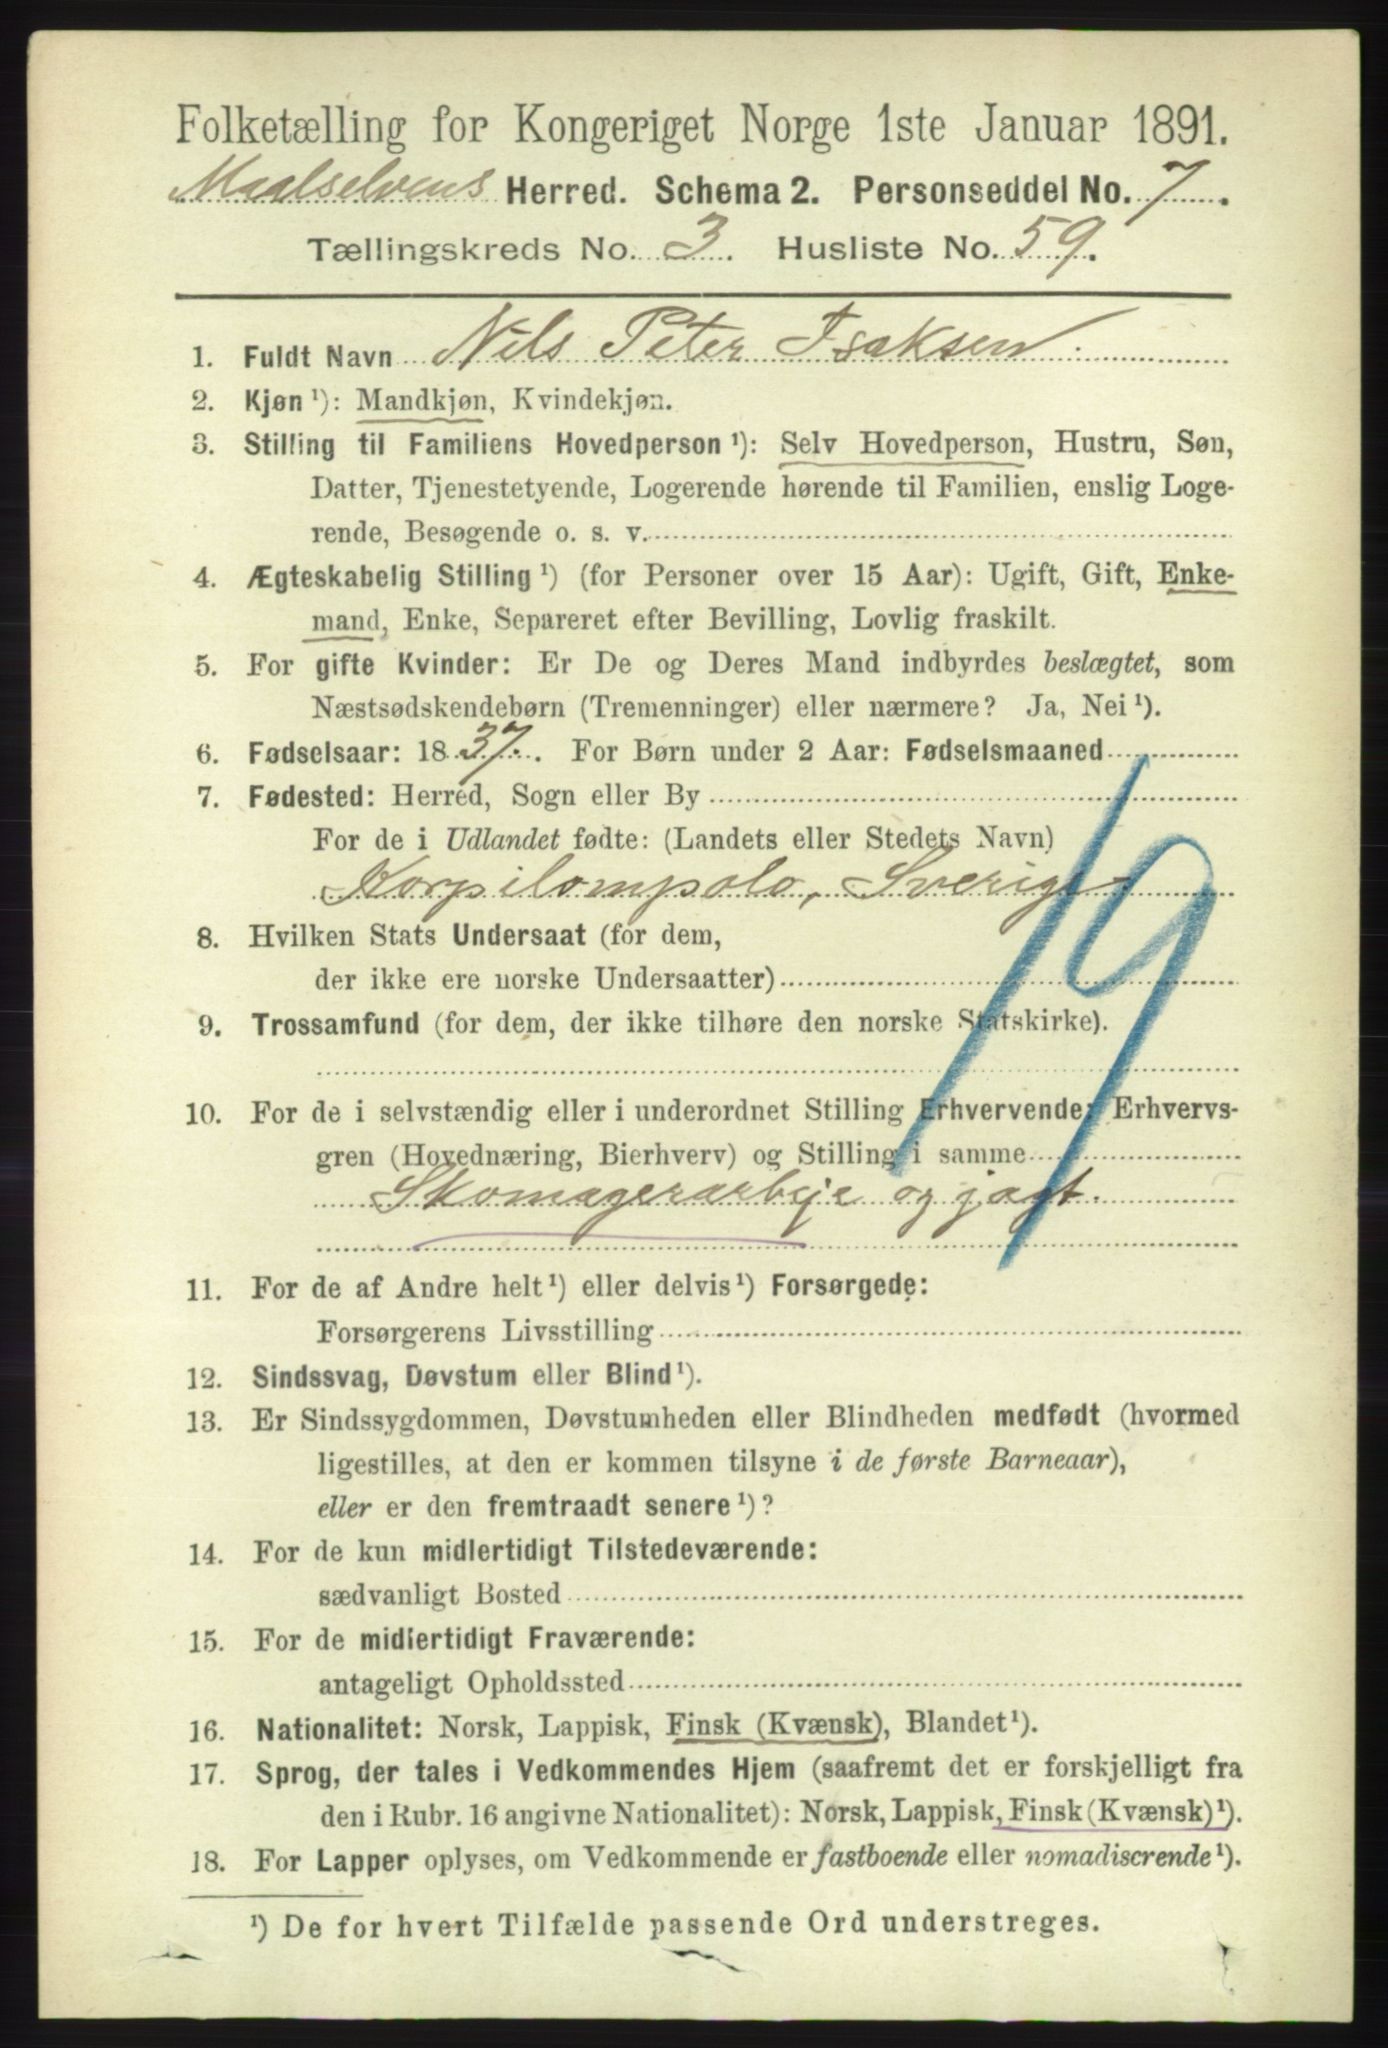 Folketælling for Kongeriget Norge 1ste Januar 1891.
Maalselvens Herred. Schema 2. Personseddel No. 7.
Tællingskreds No. 3. Husliste No. 59.
1. Fuldt Navn Nils Peter Isaksen
2. Kjøn ¹): Mandkjøn, Kvindekjøn.
3. Stilling til Familiens Hovedperson ¹): Selv Hovedperson, Hustru, Søn,
Datter, Tjenestetyende, Logerende hørende til Familien, enslig Loge-
rende, Besøgende o. s. v.
4. Ægteskabelig Stilling ¹) (for Personer over 15 Aar): Ugift, Gift, Enke-
mand, Enke, Separeret efter Bevilling, Lovlig fraskilt.
5. For gifte Kvinder: Er De og Deres Mand indbyrdes beslægtet, som
Næstsødskendebørn (Tremenninger) eller nærmere? Ja, Nei ¹).
6. Fødselsaar: 1837. For Børn under 2 Aar: Fødselsmaaned
7. Fødested: Herred, Sogn eller By
For de i Udlandet fødte: (Landets eller Stedets Navn)
Korpilompolo, Sverige
8. Hvilken Stats Undersaat (for dem,
der ikke ere norske Undersaatter)
9. Trossamfund (for dem, der ikke tilhøre den norske Statskirke).
19
10. For de i selvstændig eller i underordnet Stilling Erhvervende: Erhvervs-
gren (Hovednæring, Bierhverv) og Stilling i samme
Skomagerarbeje og jagt.
11. For de af Andre helt ¹) eller delvis ¹) Forsørgede:
Forsørgerens Livsstilling
12. Sindssvag, Døvstum eller Blind ¹).
13. Er Sindssygdommen, Døvstumheden eller Blindheden medfødt (hvormed
ligestilles, at den er kommen tilsyne i de første Barneaar),
eller er den fremtraadt senere ¹)?
14. For de kun midlertidigt Tilstedeværende:
sædvanligt Bosted
15. For de midlertidigt Fraværende:
antageligt Opholdssted
16. Nationalitet: Norsk, Lappisk, Finsk (Kvænsk), Blandet ¹).
17. Sprog, der tales i Vedkommendes Hjem (saafremt det er forskjelligt fra
den i Rubr. 16 angivne Nationalitet): Norsk, Lappisk, Finsk (Kvænsk) ¹).
18. For Lapper oplyses, om Vedkommende er fastboende eller nomadiscrende ¹).
¹) De for hvert Tilfælde passende Ord understreges.